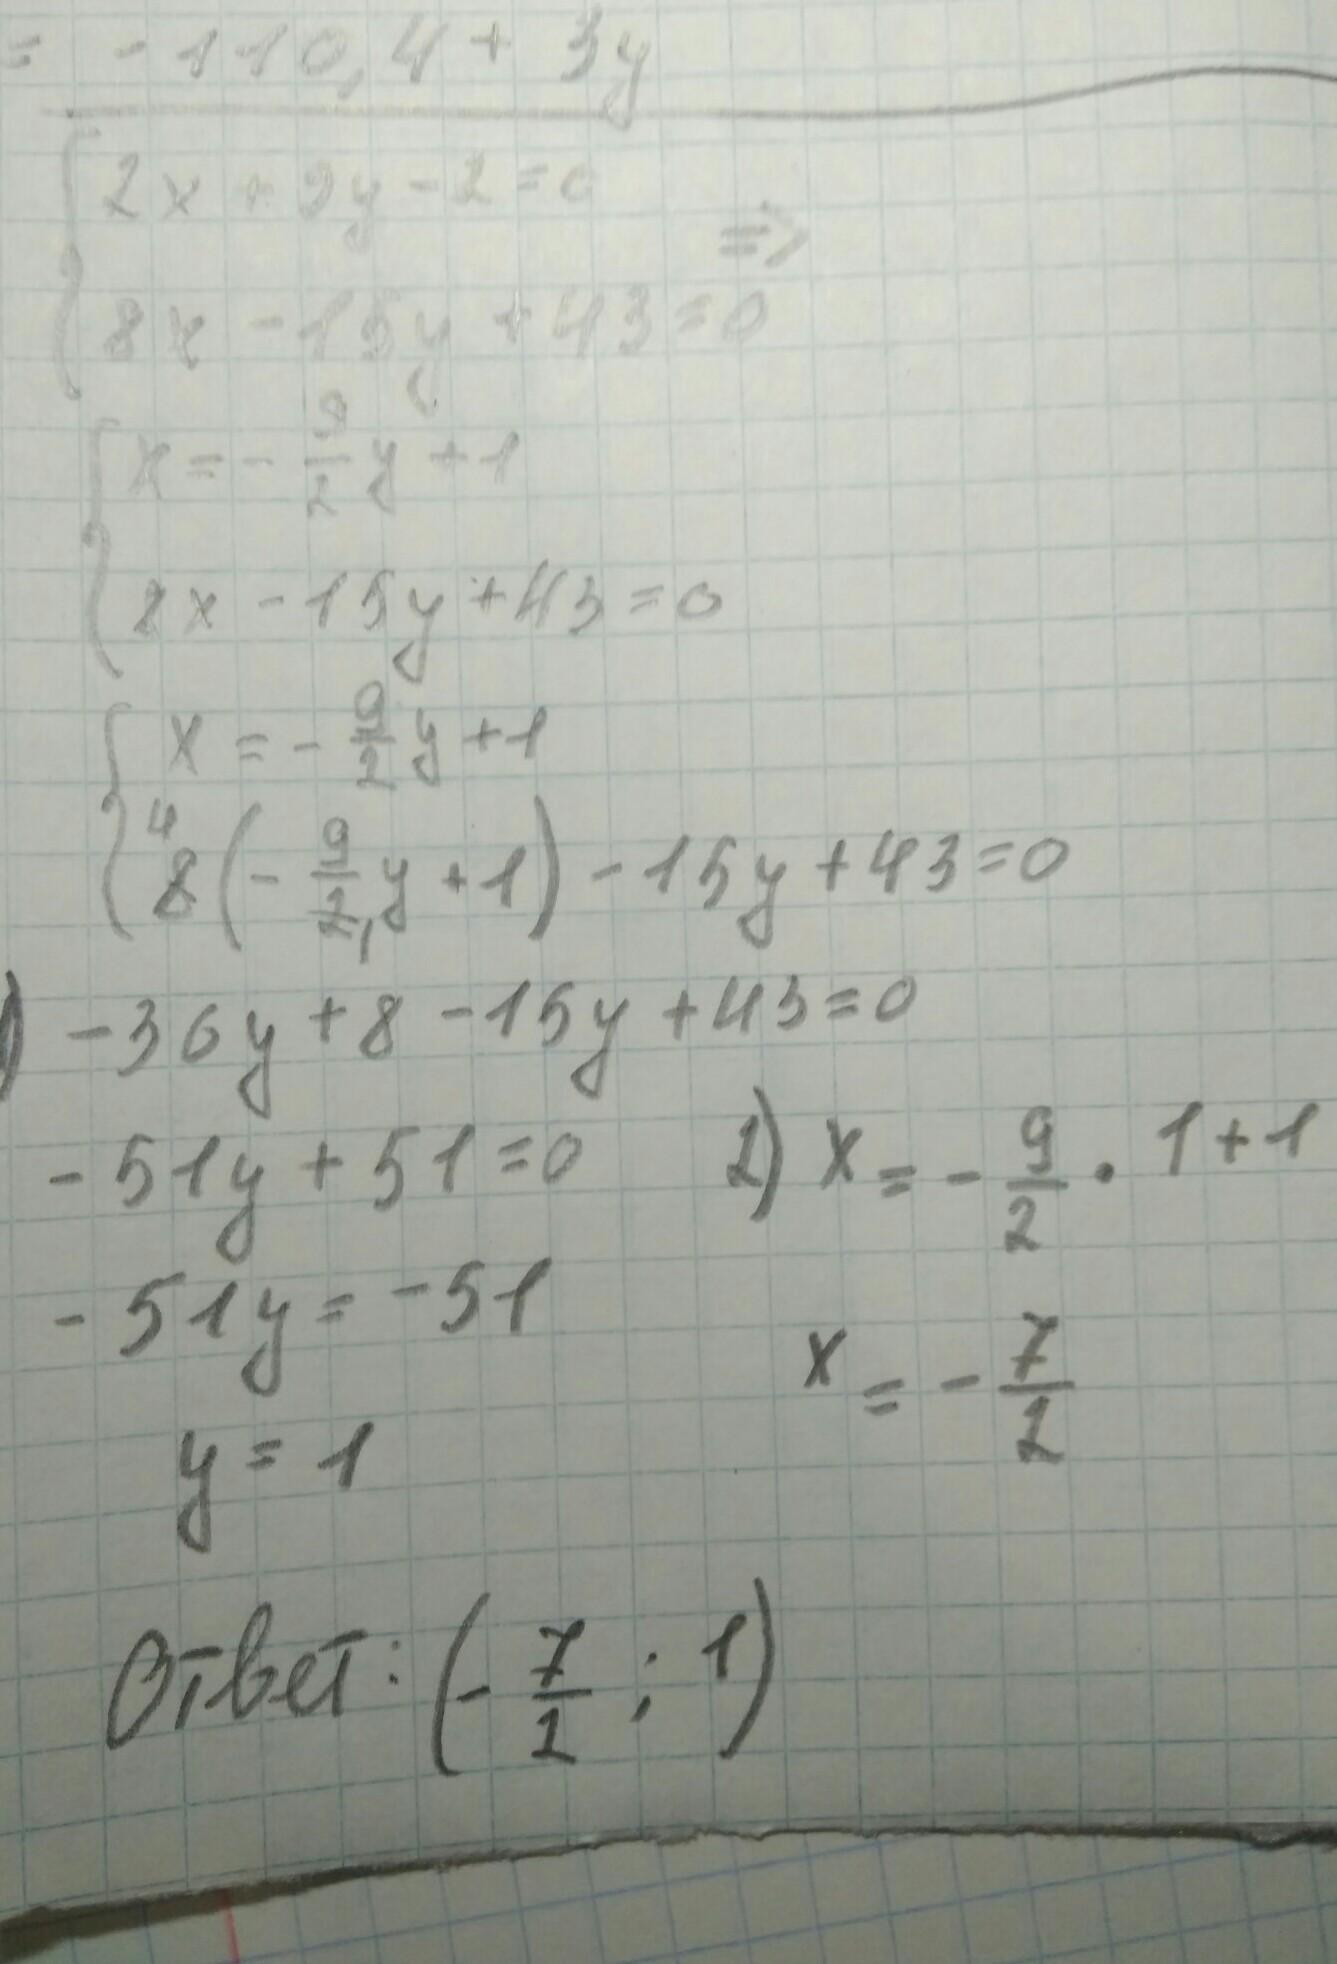 = -110,4 + 3y
2x + 9y - 2 = 0
=>
8x - 15y + 43 = 0
x = - 9/2 y + 1
8x - 15y + 43 = 0
x = - 9/2 y + 1
4
8(- 9/2 1 y + 1) - 15y + 43 = 0
) -36y + 8 - 15y + 43 = 0
-51y + 51 = 0
-51y = -51
y = 1
2) x = - 9/2 · 1 + 1
x = - 7/2
Ответ: (- 7/2 ; 1)